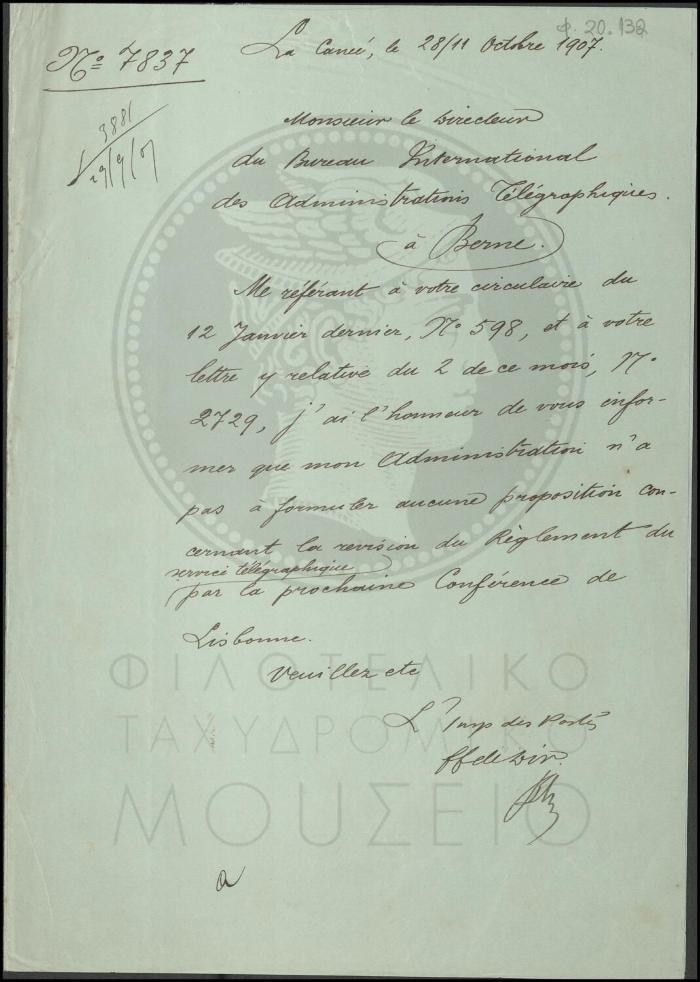 φ. 20.132
La Canée, le 28/11 Octobre 1907.
Nº 7837
3881
29/9/07
Monsieur le Directeur
du Bureau International
des Administrations Télégraphiques.
à Berne.
Me référant à votre circulaire du
12 Janvier dernier, Nº 598, et à votre
lettre y relative du 2 de ce mois, Nº
2729, j'ai l'honneur de vous infor-
mer que mon Administration n'a
pas à formuler aucune proposition con-
cernant la revision du Règlement du
service télégraphique
par la prochaine Conférence de
Lisbonne.
Veuillez etc
L'Insp des Postes
ff de Dir.
a
ΦΙΛΟΤΕΛΙΚΟ
ΤΑΧΥΔΡΟΜΙΚΟ
ΜΟΥΣΕΙΟ